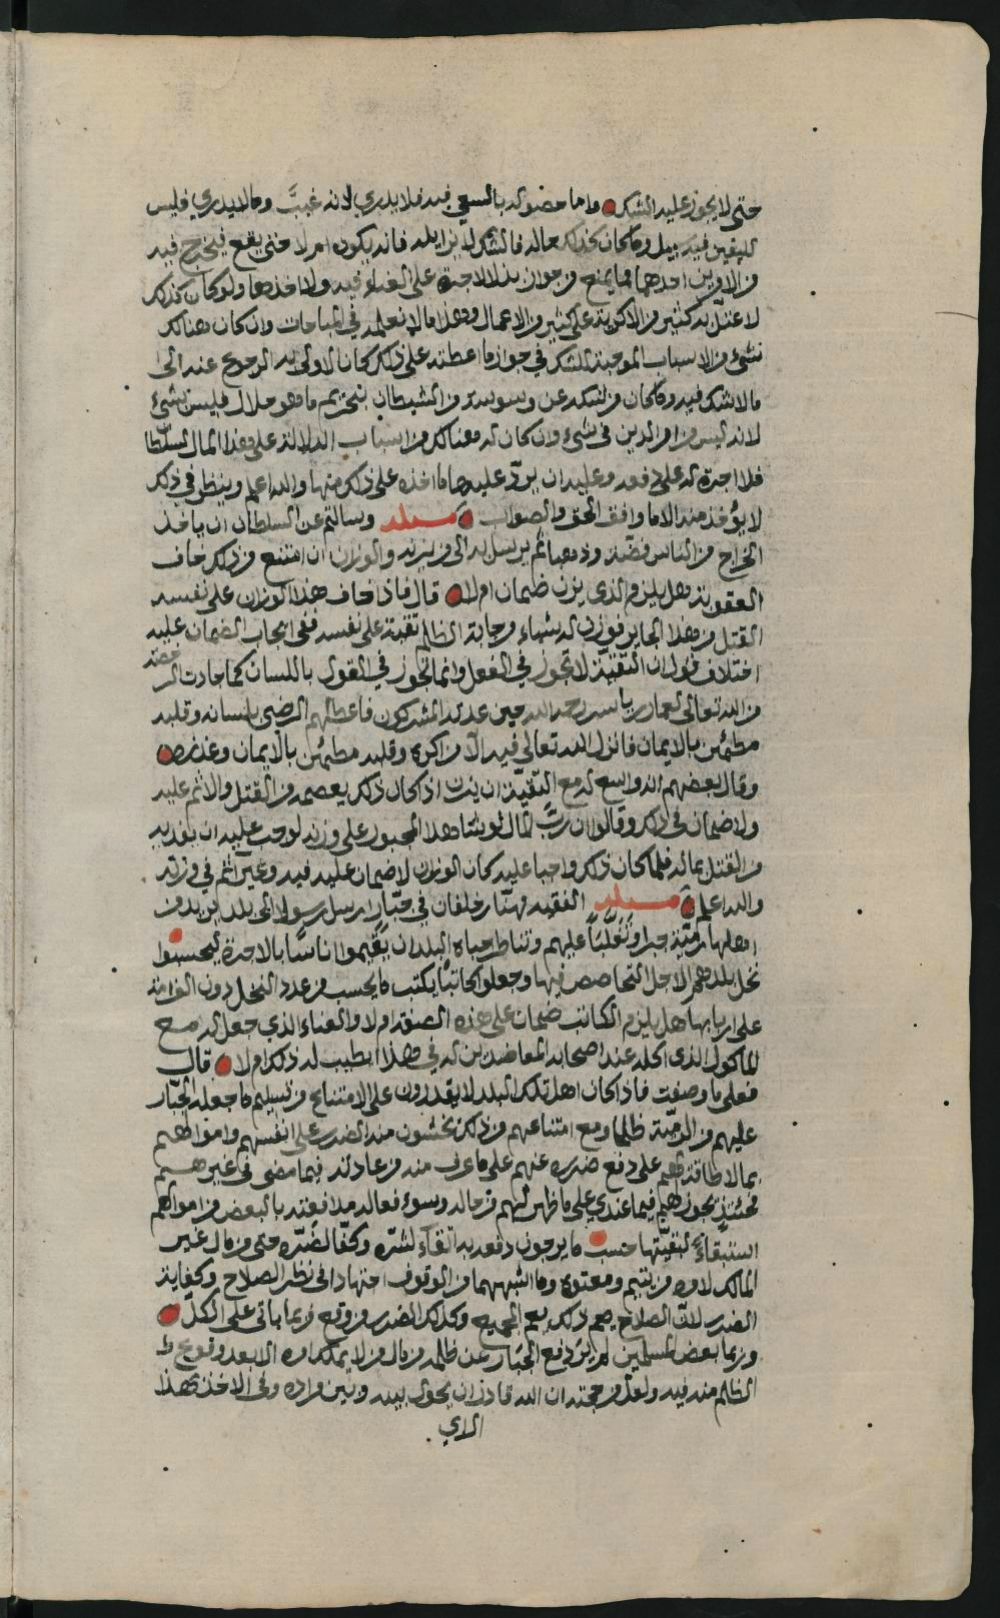 حتى لا يجوز عليه الشك واما حضوله بالسعي فيه فلا يدري لانه غيب وما لا يدري فليس
لليقين فيه سبيل وما كان كذلك حاله فالشك لا يزايله فانه يكون ام لا حتى يقع فيخرج فيه
من الامرين احدهما فما يمنع من جواز بذل الاجرة على العناء فيه ولا اخذها ولو كان كذلك
لاعتل به كثير من الاكرية على كثير من الاعمال وهذا ما لا نعلمه في المباحات وان كان هنالك
شيء من الاسباب الموجبة للشك في جواز ما اعطته على ذلك كان الاولى به الرجوع عنه الى
ما لا شك فيه وما كان من شكه عن وسوسة من الشيطان بتحريم ما هو حلال فليس بشيء
لانه ليس من امر الدين في شيء وان كان له هنالك من اسباب الدلالة على هذا المال
فلا اجرة له على دفعه وعليه ان يرد عليها ما اخذه على ذلك منها والله اعلم وينظر في ذلك
لا يؤخذ منه الا ما وافق الحق والصواب مسئلة وسالته عن السلطان ان ياخذ
الخراج من الناس فضة وذهبا ثم يرسل به الى من يزنه والوزان ان امتنع من ذلك خاف
العقوبة هل يلزم الذي يزن ضمان ام لا قال فاذا خاف هذا الوزان على نفسه
القتل من هذا الجاير فوزن له شيئا من جباية الظالم تقية على نفسه ففي ايجاب الضمان عليه
اختلاف قول ان التقية لا تجوز في الفعل وانما تجوز في القول باللسان كما جاءت الرخصة
من الله تعالى لعمار بن ياسر رحمه الله حين عذبه المشركون فاعطاهم الرضى بلسانه وقلبه
مطمئن بالايمان فانزل الله تعالى فيه الا من اكره وقلبه مطمئن بالايمان وعذره
وقال بعضهم انه واسع له مع التقية ان يزن اذ كان ذلك يعصمه من القتل ولا اثم عليه
ولا ضمان في ذلك وقالوا ان رب المال لو شاهد المجبور على وزنه لوجب عليه ان يفديه
من القتل بماله فلما كان ذلك واجبا عليه كان الوزان لا ضمان عليه فيه وغير اثم في وزنه
والله اعلم مسئلة الفقيه مهنا بن خلفان في جبار ارسل رسولا الى بلد يريد من
اهلها رمية جبرا وتغلبا عليهم وتناظر جباه البلد ان يقيموا اناسا بالاجرة ليحسبوا
نخل بلدهم لاجل التحاصص فيها وجعلوا كاتبا يكتب ما يحسب من عدد النخل دون الغرامة
على اربابها هل يلزم الكاتب ضمان على هذه الصفة ام لا والعناء الذي جعل له مع
الماكول الذي اكله عند اصحابه المعاضدين له في هذا ايطيب له ذلك ام لا قال
فعلى ما وصفت فاذا كان اهل تلك البلد لا يقدرون على الامتناع من تسليم ما جعله الجبار
عليهم من الرمية ظلما ومع امتناعهم من ذلك يخشون منه الضرر على انفسهم واموالهم
بما لا طاقة لهم على دفع ضرره عنهم على ما عرف منه من عادته فيما مضى في غيرهم
فحينئذ يجوز لهم فيما عندي على ما ظهر لهم من حاله وسوء فعاله مدافعته بالبعض من اموالهم
استبقاء لبقيتها حسب ما يرجون دفعه به اتقاء لشره وكفا لضره حتى من مال غير
المالك لامره من يتيم ومعتوه وما اشبههما من الوقوف اجتهادا في نظر الصلاح وكفاية
الضرر لان الصلاح يعم ذلك بعم الجميع وكذلك الضرر من وقع فربما ياتي على الكل
وربما بعض المسلمين لم ير دفع الجبار عن ظلمه من مال من لا يملك امره الا بعد وقوع
الظلم منه فيه ولعل من حجته ان الله قادر ان يحول بينه وبين مراده وفي الاخذ بهذا
الراي